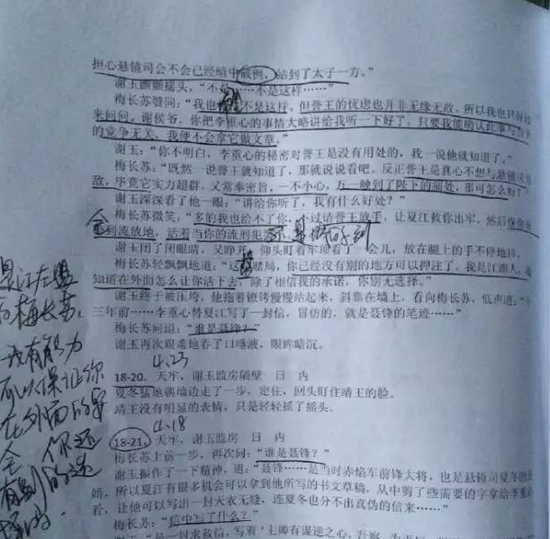 担心悬镜司会不会已经暗中破例，站到了太子一方。”
谢玉颤颤摇头，“不是……不是这样……”
梅长苏赞同：“我也 不是这样。但誉王的忧虑也并非无缘无故，所以我也只好
来问问。谢侯爷，你把李重心的事情大略讲给我听一下好了，只要我能确认此事与
的竞争无关，我便不会拿它做文章。”
谢玉：“你不明白，李重心的秘密对誉王是没有用处的，我一说他就知道了。”
梅长苏：“既然一说誉王就知道，那就说说看吧。反正誉王是真心不想与悬镜司
敌，毕竟它实力超群，又常奉密旨，一不小心，万一触到了陛下的痛处，那可怎么好？”
谢玉深深看了他一眼：“讲给你听了，我有什么好处？”
梅长苏微笑，“多的我也给不了你，不过请誉王放手，让夏江救你出牢，然后保你
全
到流放地，活着当你的流刑犯
谢玉闭了闭眼睛，又睁开，仰头盯着牢顶看了 会儿，放在腿上的手不停地抖
梅长苏轻飘飘地道：“这 赌局，你已经没有别的地方可以押注了。我是江湖人，
知道在外面怎么让你活下去，除了相信我的承诺，你别无选择。”
谢玉终于被压垮，他拖着镣铐慢慢站起来，斜靠在墙上，看向梅长苏，低声道：“
三年前……李重心替夏江写了一封信，冒仿的，就是聂锋的笔迹……”
梅长苏问道：“谁是聂锋？”
谢玉再次艰难地吞了口唾液，眼眸暗沉。
4.23
18-20，天牢，谢玉监房隔壁 日 内
夏冬猛地朝墙边走了一步，定住，回头盯住靖王的脸。
靖王没有明显的表情，只是轻轻摇了摇头。
4.18
18-21，天牢，谢玉监房 日 内
梅长苏上前一步，再次问：“谁是聂锋？”
谢玉振作了一下精神，道：“聂锋……是当时赤焰军前锋大将，也是悬镜司夏冬的
婿，所以夏江有很多机会可以拿到他所写的书文草稿，从中剪了些需要的字拿给李重
看，让他可以写出一封天衣无缝，连夏冬也分不出真伪的信来……”
梅长苏：“信中写了什么？”
是一封求救信，写着‘主帅有谋逆之心，
是江左盟
的梅长苏
我有能力
可以保证你
在外面的安
全 你还
有别的选
择吗